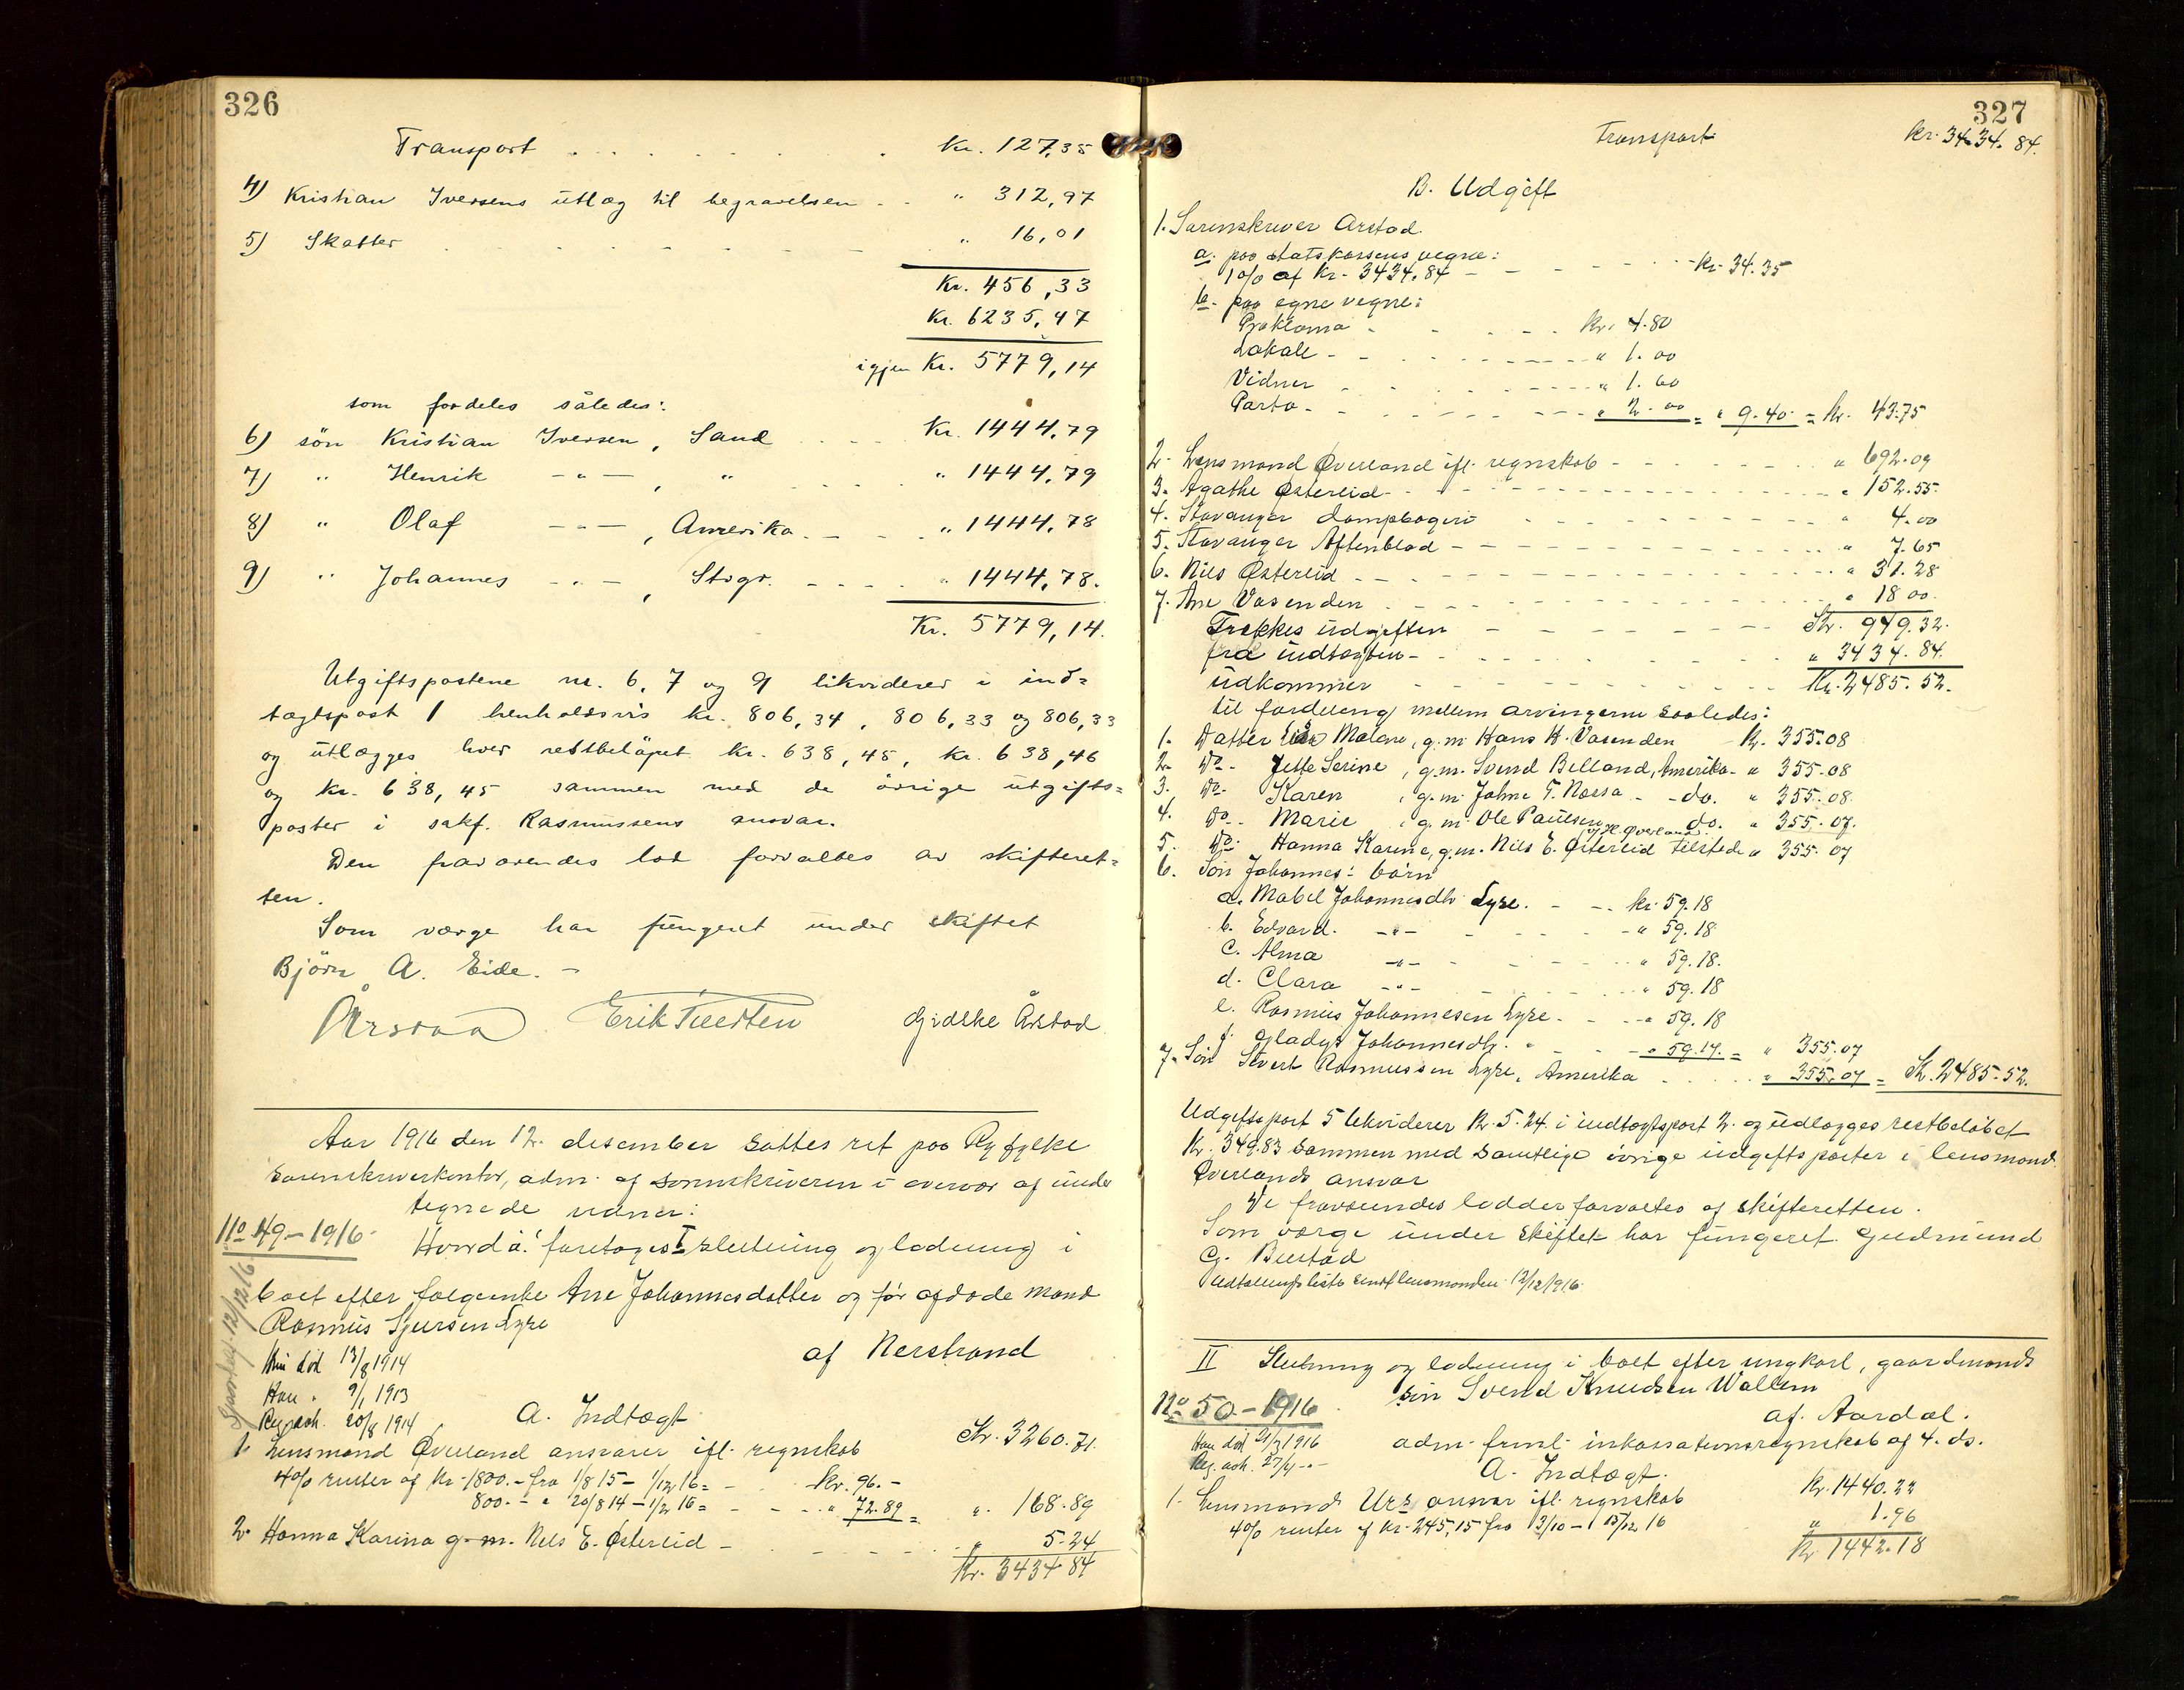 326
Transport . . . . . . . Kr. 127,35
4) Kristian Iversens utlæg til begravelsen - - " 312,97
5) Skatter - - - - - - " 16,01
Kr. 456,33
Kr. 6235,47
igjen Kr. 5779,14
som fordeles således:
6) sön Kristian Iversen, Sand . . . . Kr. 1444,79
7) " Henrik - " - , " . . . . " 1444,79
8) " Olaf - - - , Amerika. - - " 1444,78
9) " Johannes - " - , Stvgr. - - - - " 1444,78.
Kr. 5779,14.
Utgiftspostene nr. 6, 7 og 9 likviderer i ind=
tægtspost 1 henholdsvis kr. 806,34, 806,33 og 806,33
og utlægges hver restbelöpet kr. 638,45, kr. 638,46
og kr. 638,45 sammen med de övrige utgifts=
poster i sakf. Rasmussens ansvar.
Den fraværendes lod forvaltes av skifteret=
ten.
Som værge har fungeret under skiftet
Björn A. Eide. -
Årstad Erik Tveden Gjertke Årstad
Aar 1916 den 12. desember sattes ret paa Ryfylke
sorenskriverkontor, adm. af sorenskriveren i overvær af under
tegnede vidner:
No 49 - 1916. Hvorda: foretoges I slutning og lodning i
boet efter følgende Ane Johannesdatter og før afdøde mand
Rasmus Sjursen Lyse
af Nerstrand
Hun död 13/8 1914
Han " 9/1 1913
Reg. avh. 20/8 1914
A. Indtægt
1. Lensmand Øverland ansvarer ifl. regnskab Kr. 3260.71.
4% renter af kr. 1800.- fra 1/8 15 - 1/12 16 = - kr. 96.-
800.- " 20/8 14 - 1/12 16 = - - - " 72.89 = " 168.89
2. Hanna Karina g. m. Nels E. Østereid - - - - - " 5.24
Kr. 3434.84
327
Transport kr. 3434.84.
B. Udgift
1. Sorenskriver Årstad.
a. paa statskassens vegne:
1% af kr. 3434.84 - - - - - kr. 34.35
b. paa egne vegne:
Proklama - - - - kr. 4.80
Lokale - - - - - " 1.00
Vidner - - - - " 1.60
Porto - - - - " 2.00 = " 9.40 = kr. 43.75
2. Lensmand Øverland ifl. regnskab - - - - - " 692.09
3. Agathe Østereid - - - - - " 152.55.
4. Stavanger dampbageri - - - - " 4.00
5. Stavanger Aftenblad - - - - - " 7.65
6. Nils Østereid - - - - - " 31.28
7. Ane Vasenden - - - - - " 18.00.
Trækkes udgiften - - - - - Kr. 949.32.
fra indtægten - - - - - " 3434.84.
udkommer - - - - - Kr. 2485.52.
til fordeling mellem arvingerne saaledes:
1. Datter Malene, g. m. Hans H. Vasenden kr. 355.08
2. Do. Jette Serine, g. m. Svend Belland, Amerika - " 355.08
3. Do. Karen, g. m. Johne T. Næssa - - do. " 355.08.
4. Do. Marie, g. m. Ole Paulsen - do. " 355.07.
5. Do. Hanna Karine, g. m. Nils E. Østereid tilstede v/ H. Øverland " 355.07
6. Sön Johannes's børn
a. Mabel Johannesdtr. Lyse. - - kr. 59.18
b. Edvard. - " - - - " 59.18
c. Alma - " - - - " 59.18.
d. Clara - " - - - " 59.18
e. Rasmus Johannesen Lyse - - " 59.18
f. Gladys Johannesdtr. " - - " 59.17. = " 355.07
7. Sön Sivert Rasmussen Lyse, Amerika . . . . " 355.07 = Kr. 2485.52.
Udgiftspost 5 likviderer kr. 5.24. i indtægtspost 2. og udlægges restbeløbet
kr. 349.83 sammen med samtlige øvrige udgiftsposter i lensmand
Øverlands ansvar
De fraværendes lodder forvaltes af skifteretten.
Som værge under skiftet har fungeret Gudmund
G. Bustad
Udtællingsliste sendt lensmanden 12/12 1916.
II Slutning og lodning i boet efter ungkarl, gaardmands
sön Svend Knudsen Wallem
af Aardal.
No 50. - 1916
Han död 21/3 1916 adm. freml. inkassationsregnskab af 4. ds.
Reg. avh. 27/4 - " -
A. Indtægt.
1. Lensmand Urs ansvar ifl. regnskab Kr. 1440.22
4% renter af kr. 245,15 fra 3/10 - 15/12 16 " 1.96
Kr. 1442.18